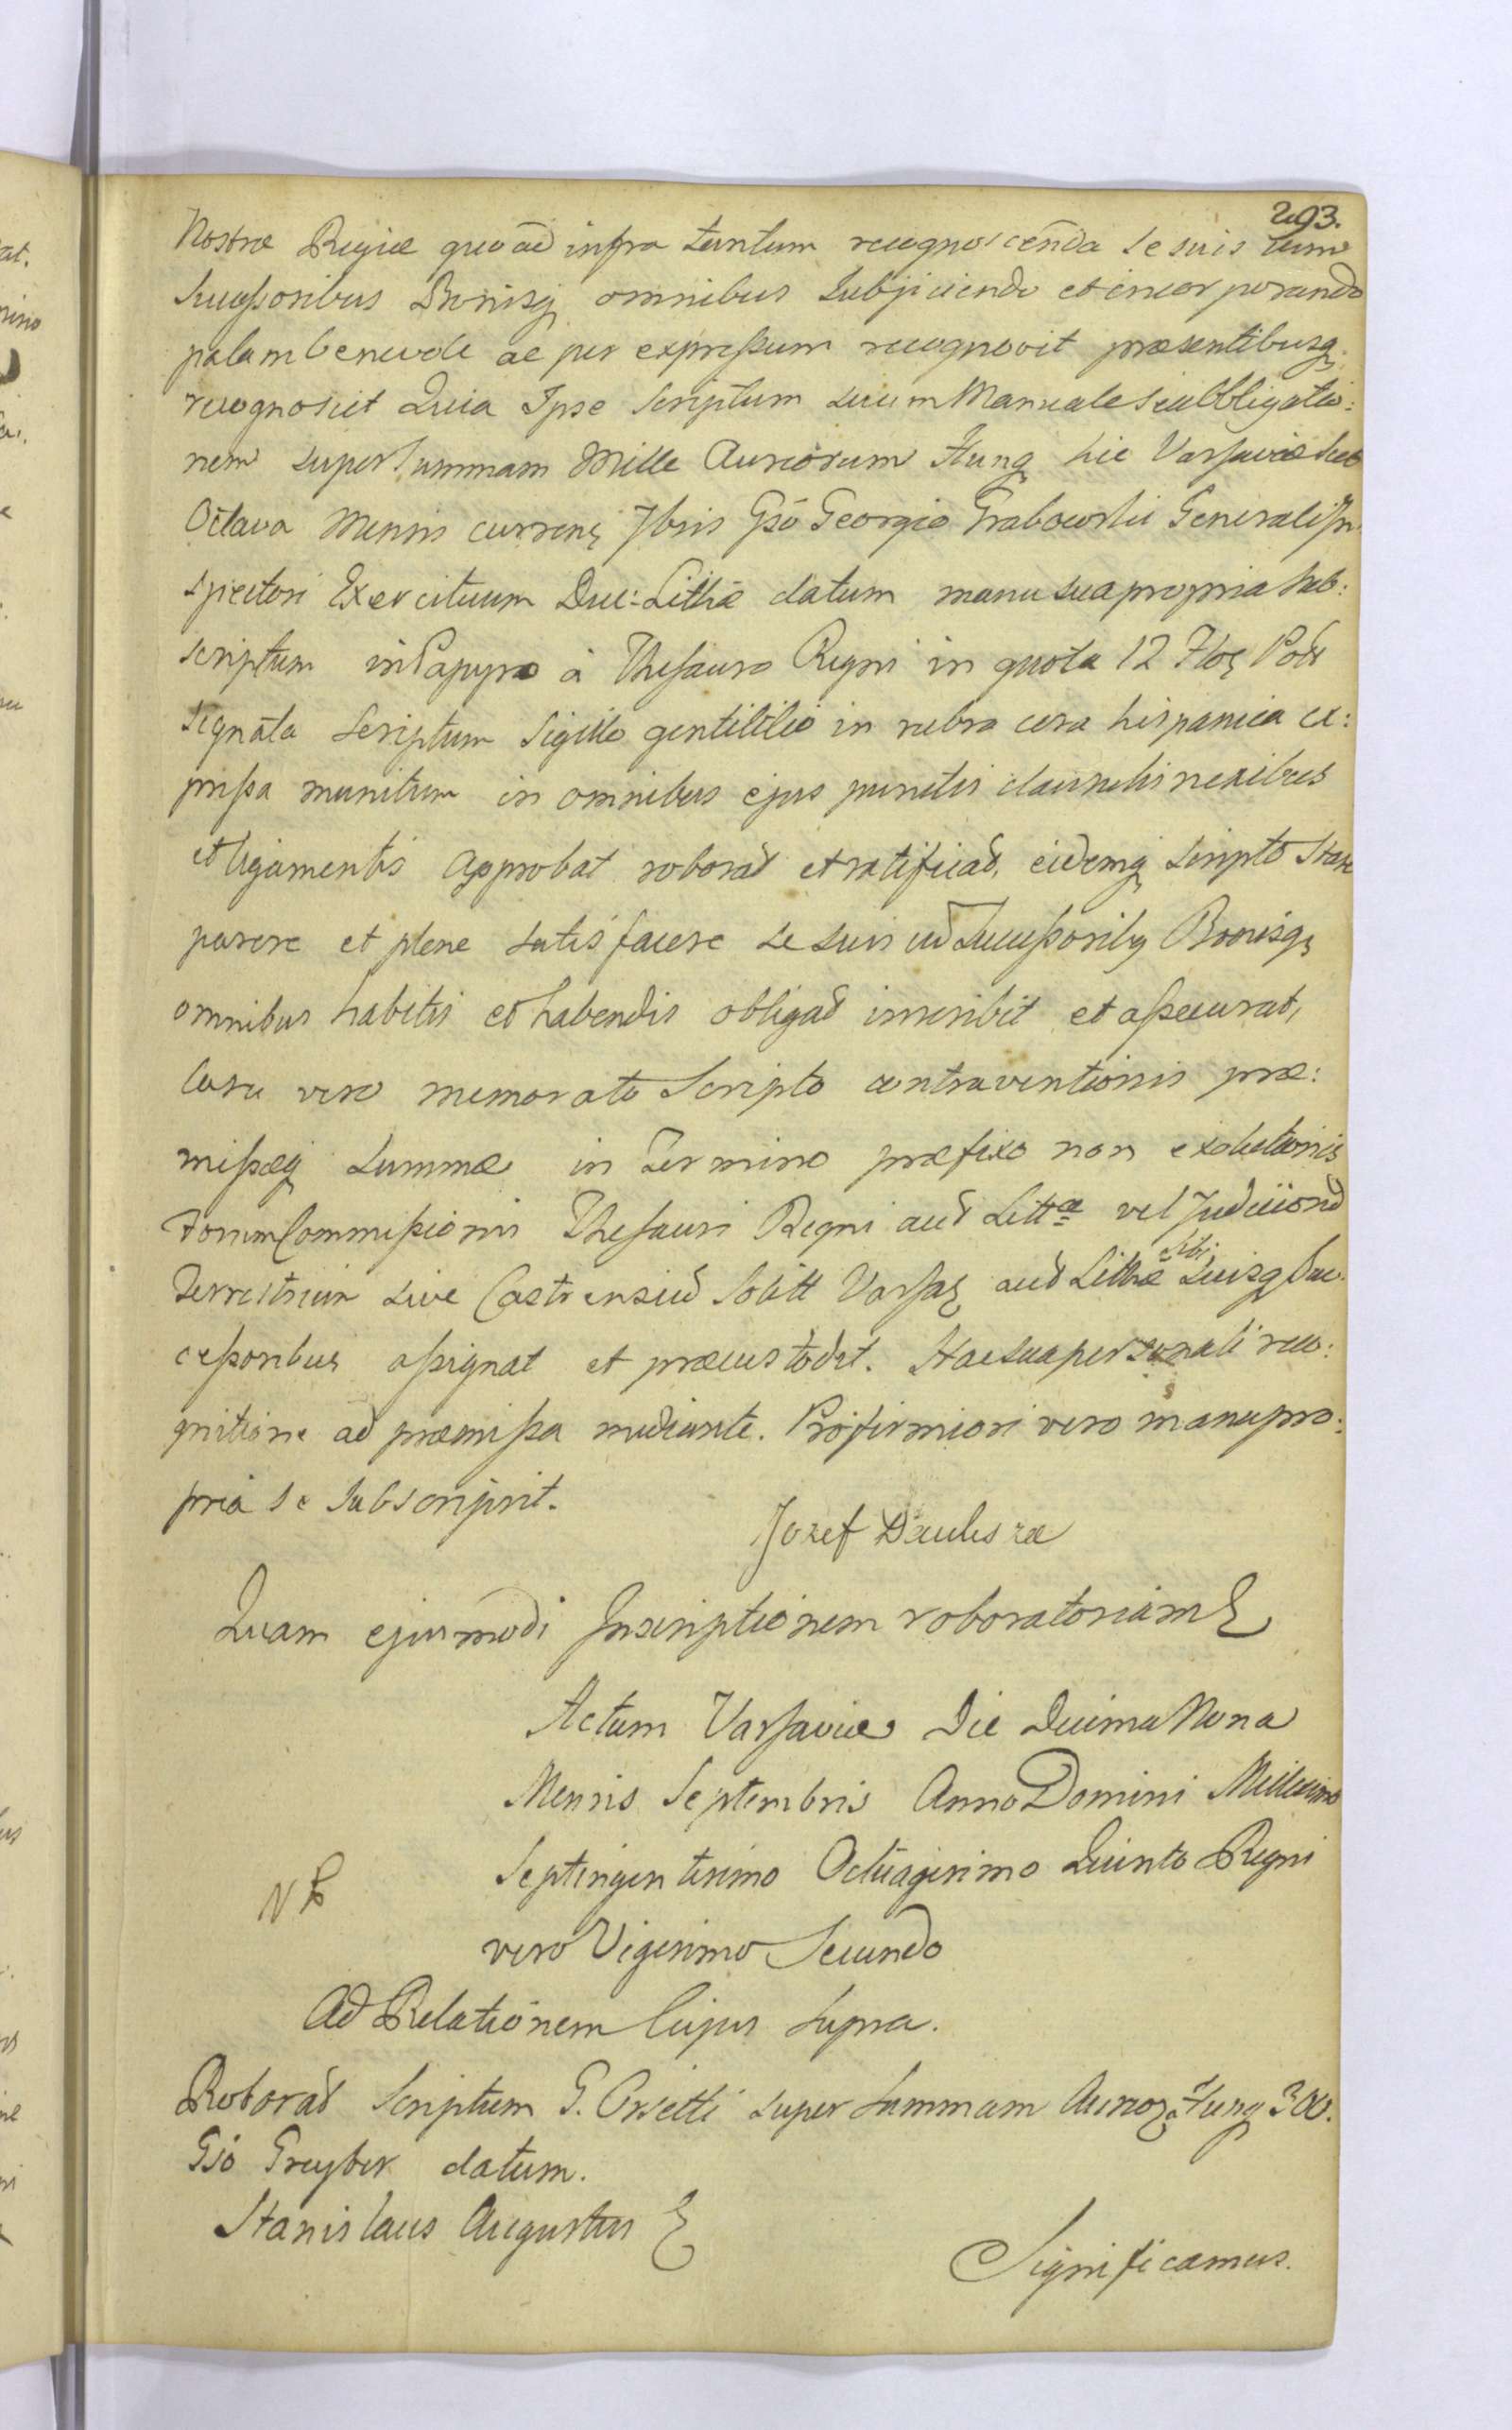 293.
Nostræ Regiæ quoad infra tantum recognoscēnda se suis cum
Sucessoribus Bonisq omnibus subjiciendo et incorporando
palam benevole ac per expressum recognovit præsentibusq.
recognoscit Quia Ipse Scriptum suum Manuale seu Obligatio:
nem super Summam Mille Aureorum Hung hic Varsaviæ sub
Octava Mensis curren 7bris Gso Georgio Grabowski Generali In
spectori Exercituum Duc: Litthæ datum manu sua propria sub:
scriptum in Papyro à Thesauro Regni in quota 12 Flo Pol
signata Scriptum Sigillo gentilitio in rubra cera hispanica ex:
pressa munitum in omnibus ejus punctis clausulis nexibus
et ligamentis approbat roborat et ratificat, eidemq scripto stare
parere et plene satisfacere se suis cū Sucessorib Bonisq
omnibus habitis et habendis obligat inscribit et assecurat,
Casu vero memorato Scripto contraventionis præ:
missæq summæ in Termino præfixo non exolutionis
Forum Commissionis Thesauri Regni aut Littæ vel Judiciord
Terrestrium sive Castrensiū Varsa aut Litthæ sibi Suisq Suc
cessoribus assignat et præcustodit. Hac sua personali reco:
gnitione ad præmissa mediante. Pro firmiori vero manu pro:
pria se subscripsit.
Jozef
Quam ejusmodi Inscriptionem roboratoriam
Actum Varsaviæ Die Decima Nona
Mensis Septembris Anno Domini Millesimo
Septingentesimo Octuagesimo Quinto Regni
vero Vigesimo Secundo
Ad Relationem Cujus supra.
Roborat Scriptum G. Orsetti super summam Aureo Hung 300.
Gso Greyber datum.
Stanislaus Augustus
Significamus.